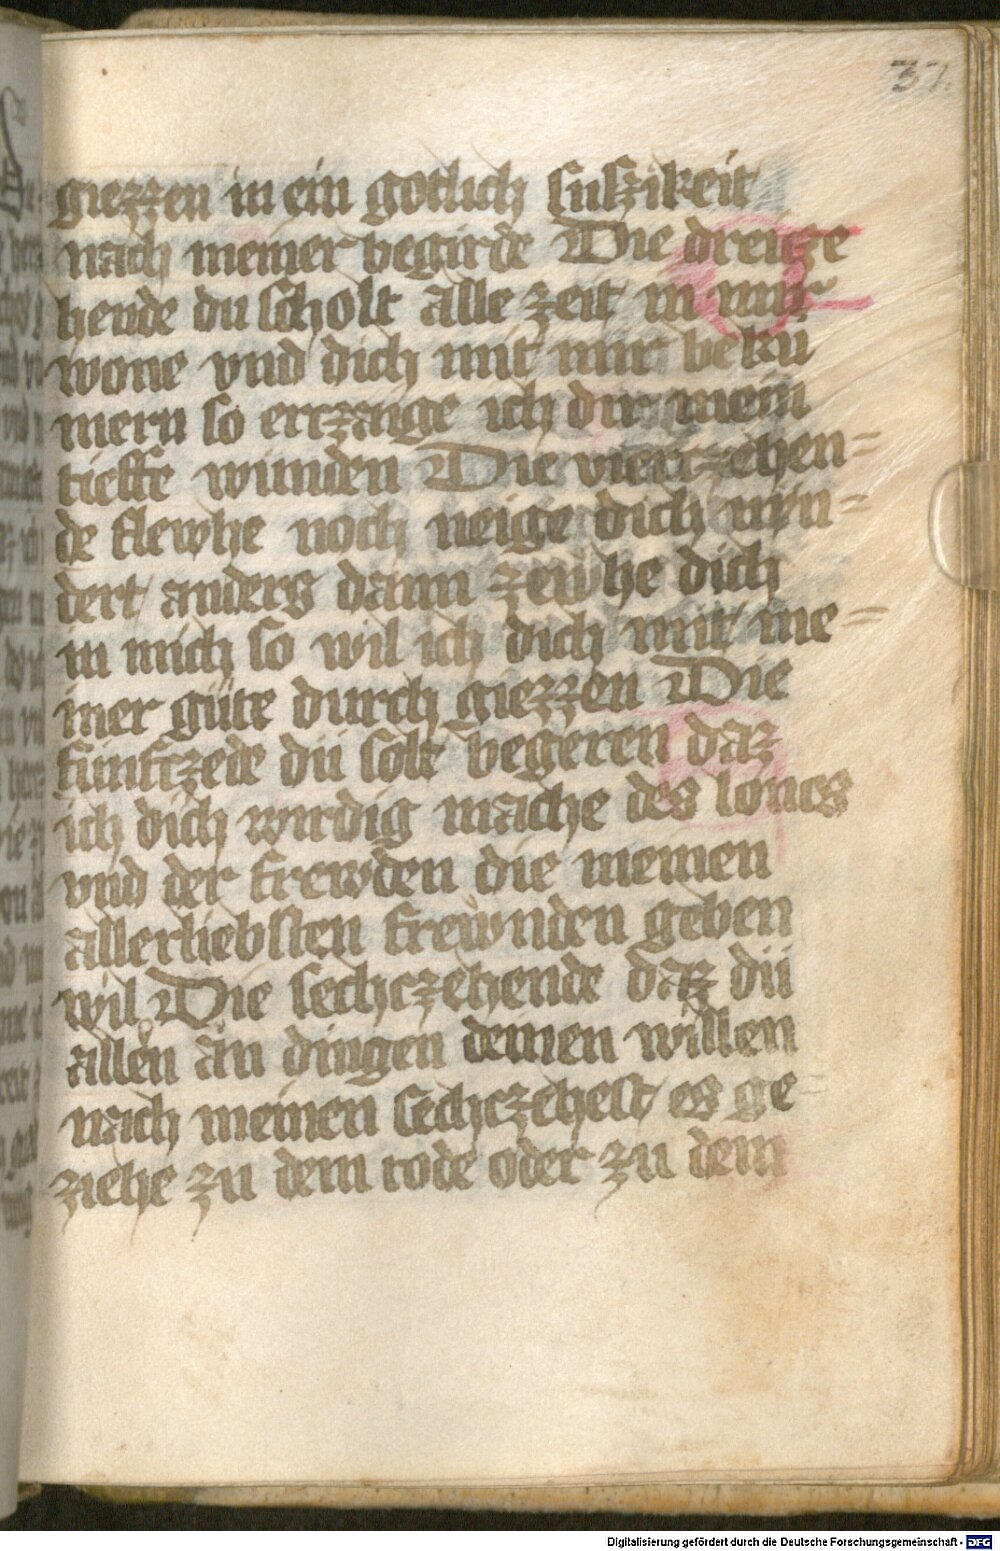 37.
giezzen in ein gotlich suszikeit
nach meiner begirde Die dreitze
hende du scholt alle zeit in mir
wone vnd dich mit mir beku
mern so erczaige ich dir mein
tieffe wunden Die vierczehen=
de flewhe noch neige dich nyn=
dert anders dann zewhe dich
in mich so wil ich dich mit me=
iner güte durch giezzen Die
funfczede du solt begeren daz
ich dich wirdig mache des lones
vnd der frewden die meinen
allerliebsten frewnden geben
wil Die sechczehende daz du
allen an dingen deinen willen
nach meinen sechczehest es ge=
ziehe zu dem tode oder zu dem
Digitalisierung gefördert durch die Deutsche Forschungsgemeinschaft - DFG